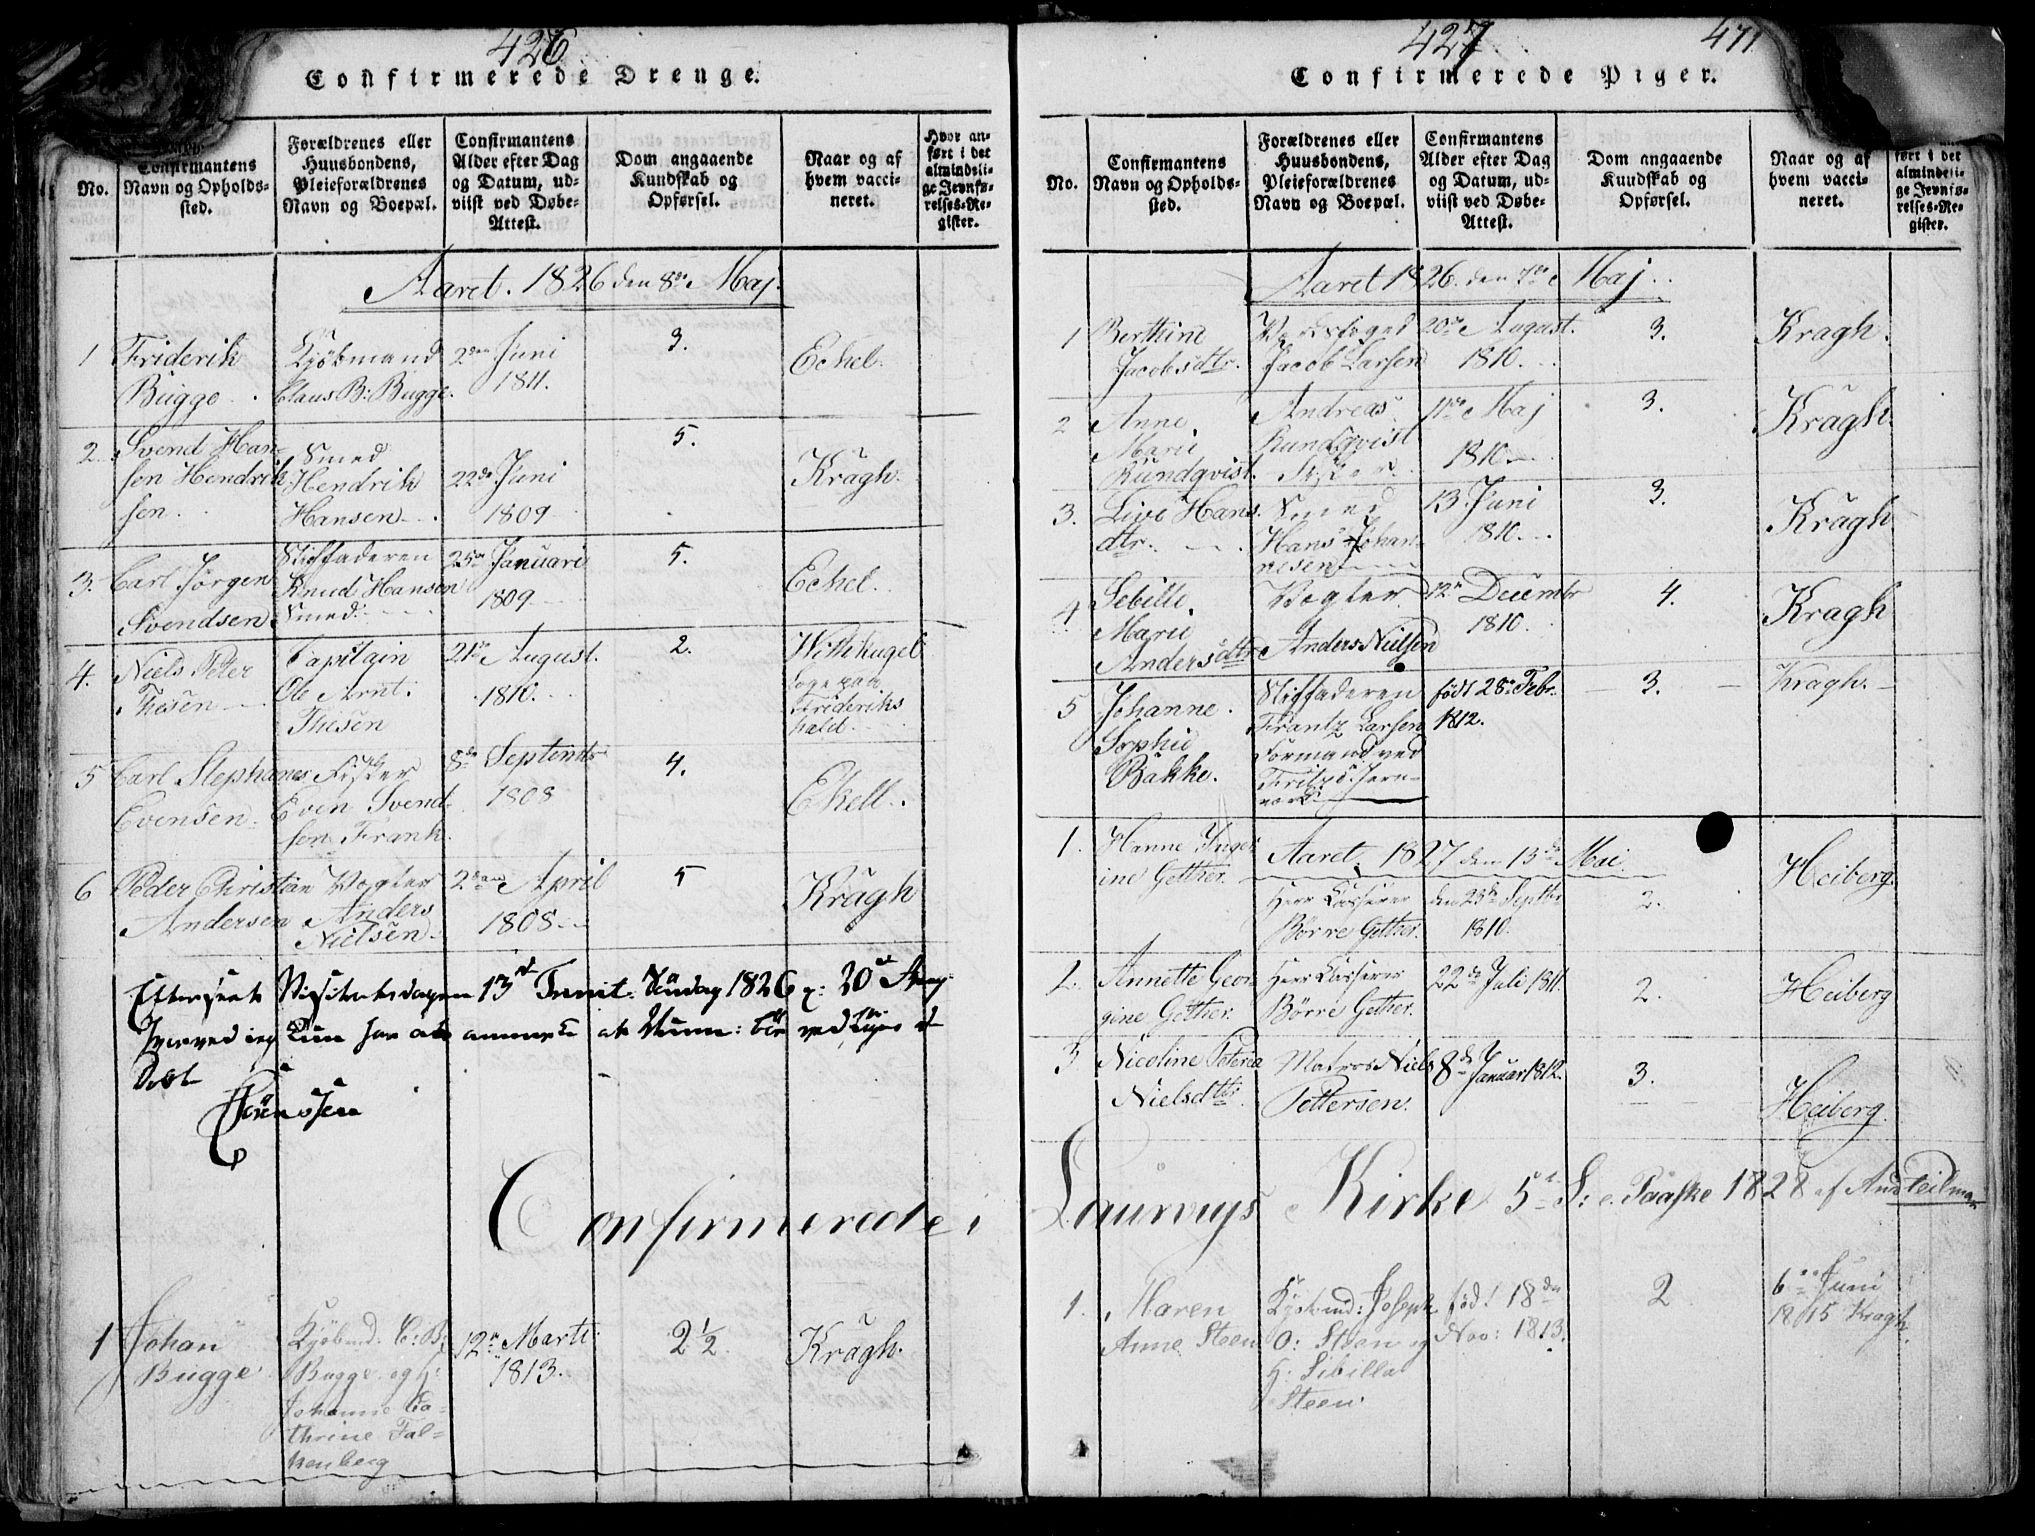 426
Confirmerede Drenge.
No.
Confirmantens
Navn og Opholds-
sted.
Forældrenes eller
Huusbondens,
Pleieforældrenes
Navn og Boepæl.
Confirmantens
Alder efter Dag
og Datum, ud-
viist ved Døbe-
Attest.
Dom angaaende
Kundskab og
Opførsel.
Naar og af
hvem vacci-
neret.
Hvor an-
ført i det
almindeli-
ge Jevnfø-
relses-Re-
gister.
Aaret. 1826 den 8de Maj.
1
Friderik
Bugge
Kjøbmand
Claus B: Bugge.
2den Juni
1811.
3.
Echel.
2.
Svend Han-
sen Hendrik
sen.
Smed
Hendrik
Hansen
22de Juni
1809
5.
Kragh.
3.
Carl Jørgen
Svendsen
Stiffaderen
Knud Hansen
Smed.
25de Januari
1809
5.
Echel.
4.
Niels Peter
Thesen
Capitain
Ole Arnt
Thesen
21de August.
1810.
2.
Frideriks
hald.
5
Carl Stephanes
Evensen
Fisker
Even Svend-
sen Frank.
8de Septembr
1808
4.
Ekell.
6
Peder Christian
Andersen
Vogter
Anders
Nielsen.
2den April
1808
5
Kragh
13de Trinit: Søndag 1826 20de Aug
Confirmerede i
1
Johan
Bugge
Kjøbmd. C: B:
Bugge og H:
Johanne Ca-
thrine Fal-
kenberg
12te Marti
1813.
2½
Kragh.
427
471
Confirmerede Piger.
No.
Confirmantens
Navn og Opholds-
sted.
Forældrenes eller
Huusbondens,
Pleieforældrenes
Navn og Boepæl.
Confirmantens
Alder efter Dag
og Datum, ud-
viist ved Døbe-
Attest.
Dom angaaende
Kundskab og
Opførsel.
Naar og af
hvem vacci-
neret.
ført i det
almindeli-
ge Jevnfø-
relses-Re-
gister.
Aaret 1826. den 7de Maj.
1
Berthine
Jacobsdtr.
Jacob Larsen
20de August.
1810.
3.
Kragh.
2
Anne
Marie
Rundqvist.
Andreas
Rundqvist
11te Maj
1810
3.
Kragh.
3.
Live Hans
dtr.
Smed
Hans Johan-
nesen
13. Juni
1810.
3.
Kragh
4
Sebille
Marie
Andersdtr
Vogter
Anders Nielsen
12te Decembr
1810.
4.
Kragh
5
Johanne
Sophie
Bakke.
Stiffaderen
Frantz Larsen
Formand ved
Fritzø Jern-
værk
født 28de Febr.
1812.
3.
Kragh.
Aaret. 1827 den 13de Mai.
1.
Hanne Inger
ine Gether.
Herr Casserer
Børre Gether.
den 25de Septbr
1810.
2.
Heiberg.
2.
Annette Geor
gine Gether.
Herr Casserer
Børre Gether.
22de Juli 1811.
2.
Heiberg
3
Nicoline Peterea
Nielsdtr.
Matros Niels
Pettersen.
8de Januar 1812.
3.
Heiberg.
Laurvigs Kirke 5te S: e. Paaske 1828 af
1.
Maren
Anne Steen
Kjøbmd: Joseph
O: Steen og
H: Sibilla
Steen.
född 18de
Nov: 1813.
2
6te Juni
1815 Kragh.